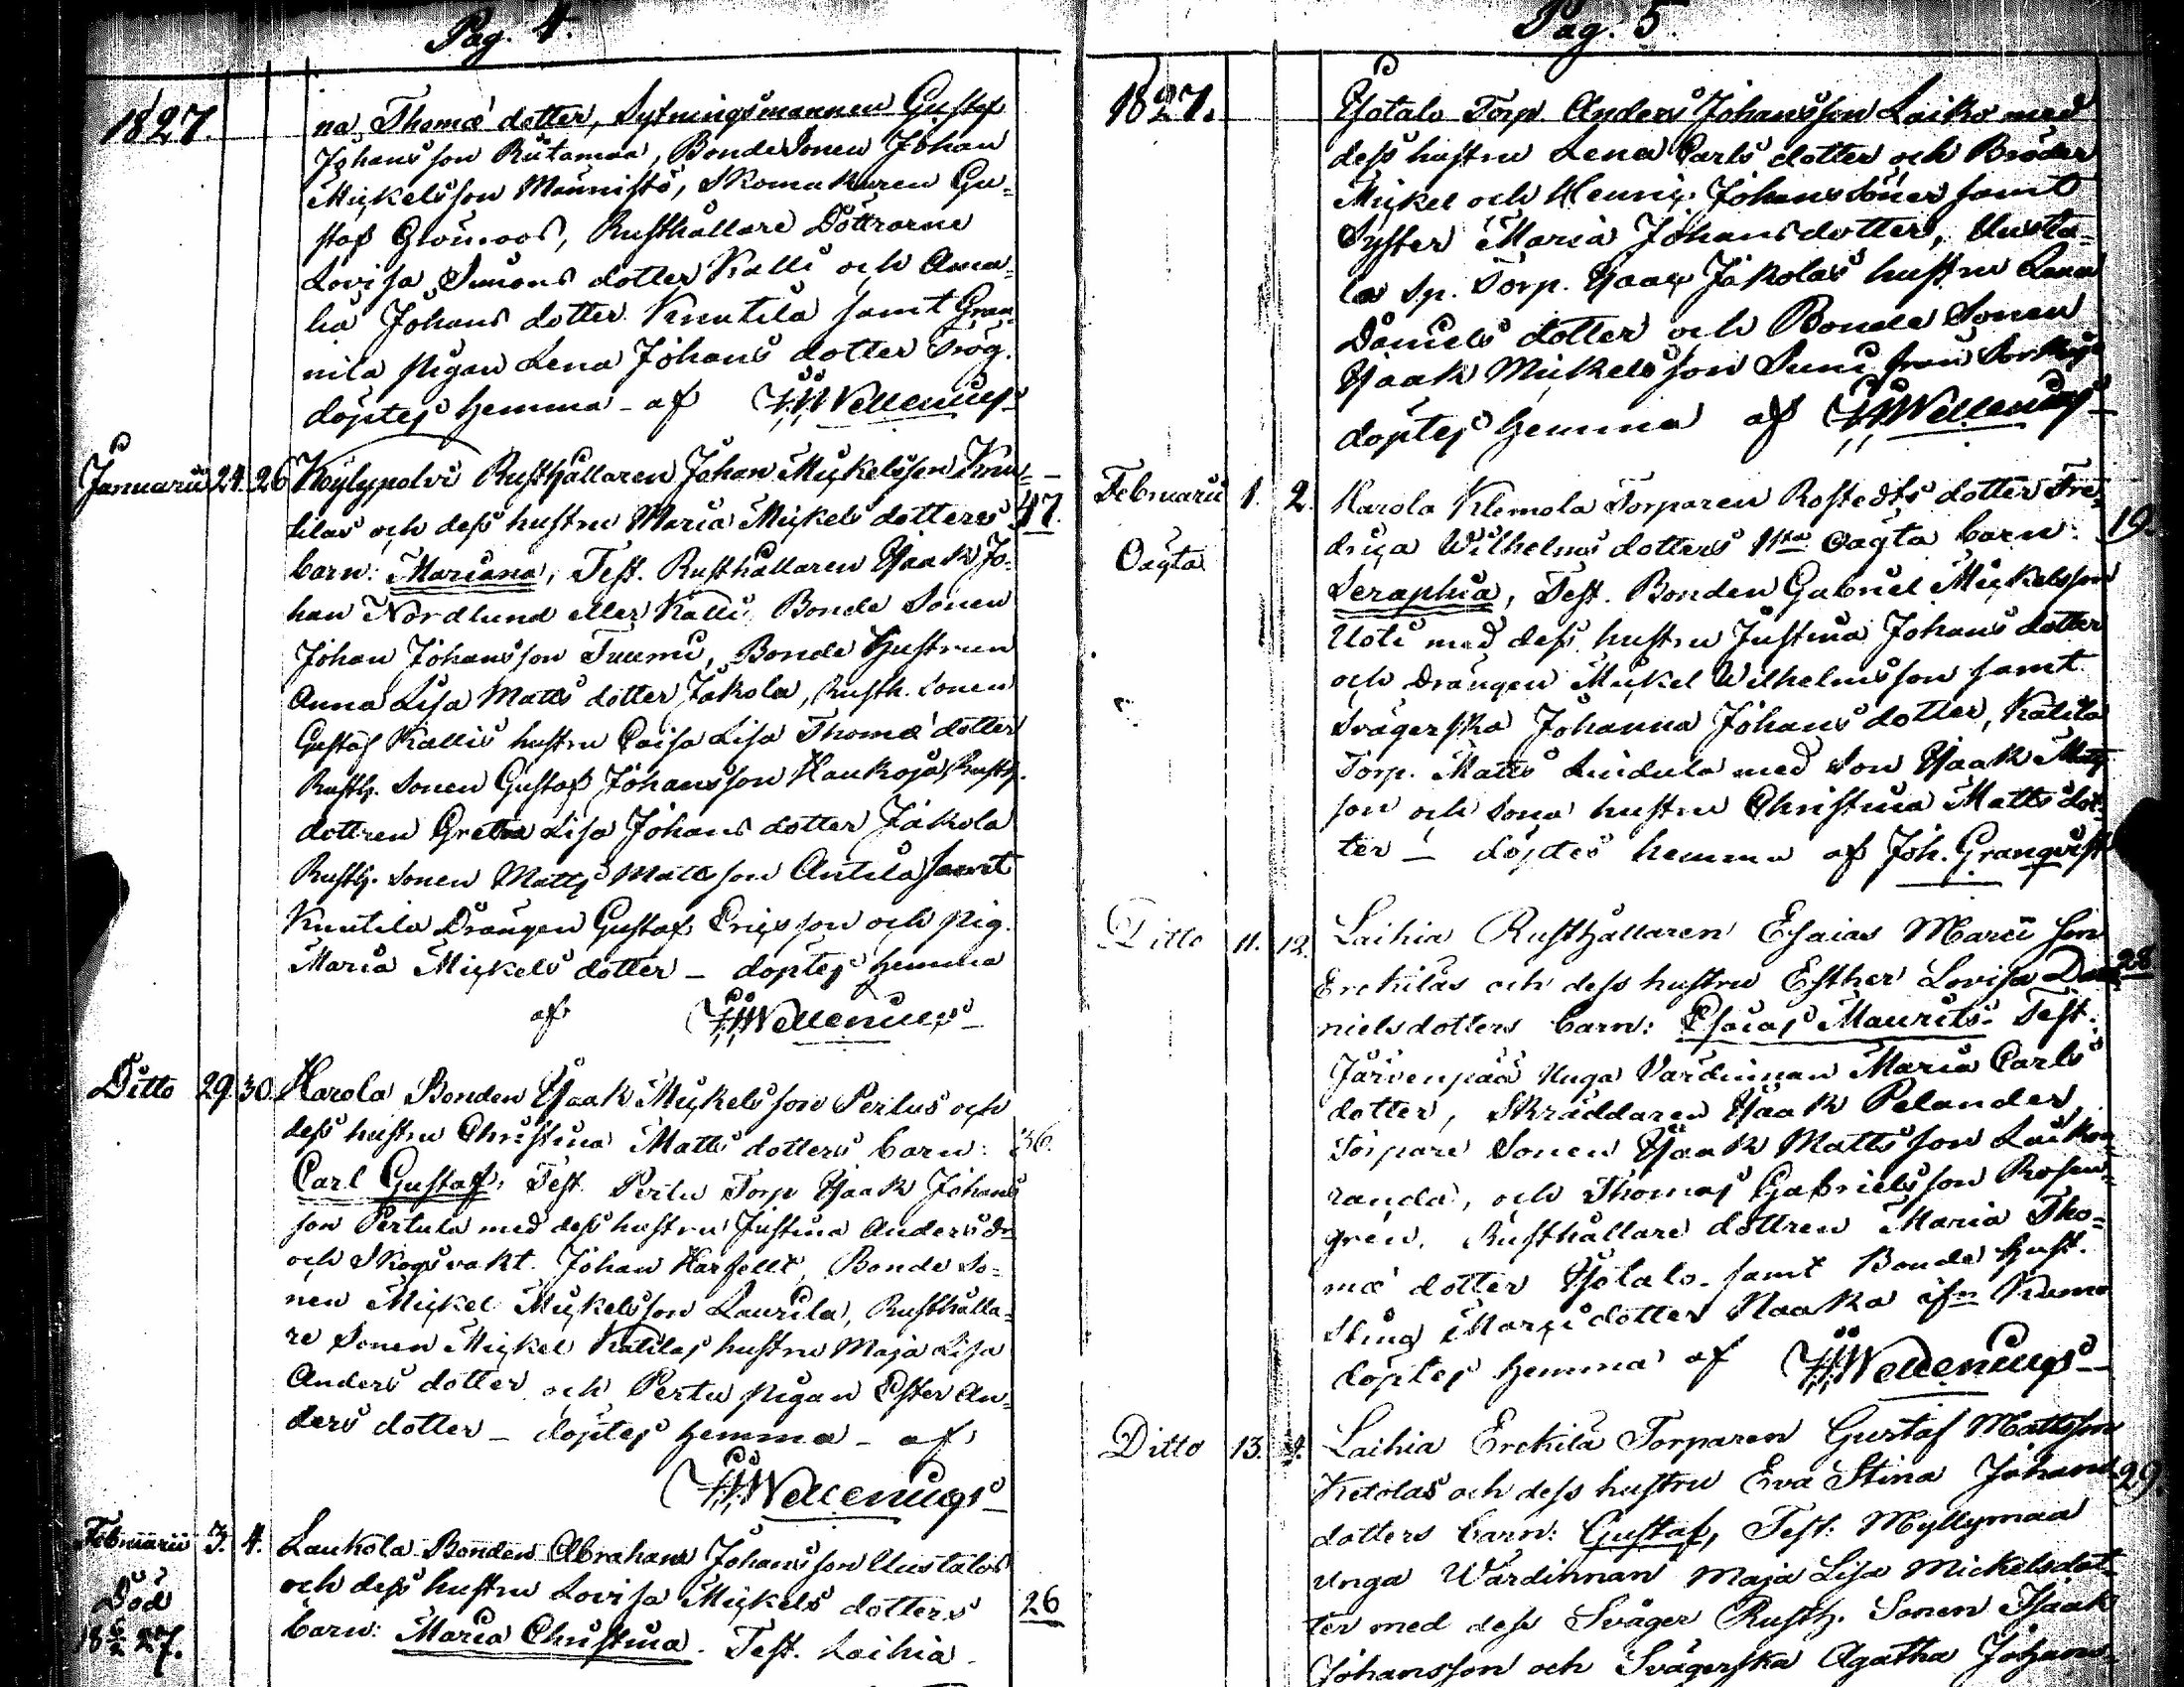 Pag. 4.
1827.
na Thomæ dotter, Sytningsmannen Gustaf
Johansson Rutamaa, Bondesonen Johan
Mickelsson Mannisto, Skomakaren Gu=
staf Gronroos, Rusthållare Döttrarne
Lovisa Simons dotter Kalli och Ama=
lia Johans dotter Knutila samt
nila pigan Lena Johans dotter
döptes hemma - af Wellenius
Januarii 24. 26 Kylypolvi Rusthållaren Johan Mickelsson Knu=
tilas och dess hustru Maria Mickels dotters 47.
barn: Mariana, Test. Rusthållaren Isaak Jo=
han Nordlund eller Kalli, Bonde Sonen
Johan Johansson Tuumi, Bonde Hustrun
Anna Lisa Matts dotter Jakola, Rusth. Sonen
Gustaf Kallis hustru Caisa Lisa Thomæ dotter
Rusth. Sonen Gustaf Johansson Haukoja, Rusth.
dottren Greta Lisa Johans dotter Jakola
Rusth. Sonen Matts Mattsson Antila samt
Knutila Drängen Gustaf Ericsson och pig.
Maria Mickels dotter - döptes hemma
af Wellenius
Ditto 29 30. Harola Bonden Isaak Mickelsson Pertus och
dess hustru Christina Matts dotters barn: 36.
Carl Gustaf, Test. Pertu Torp Isaak Johans
son Pertula med dess hustru Justina Anders dr
och Skogsvakt. Johan Harfellt, Bonde So=
nen Mickel Mickelsson Laurila, Rusthålla=
re Sonen Mickel Katilas hustru Maja Lisa
Anders dotter och Pertu pigan Ester An=
ders dotter - döptes hemma - af
Wellenius
Februarii 3. 4. Laukola Bonden Abraham Johansson Uustalos
och dess hustru Lovisa Mickels dotters 26
Död
barn: Maria Christina. Test. Laihia
27.
Pag. 5.
1827.
Isotalo Torp. Anders Johansson Laiko med
dess hustru Lena Carls dotter och Bröder
Mickel och Henric Johans Söner samt
Syster Maria Johansdotter, Uusta=
lo Sp. Torp. Isaac Jakolas hustru
Daniels dotter och Bonde Sonen
Isaak Mickelsson från
döptes hemma af Wellenius
Februarii 1. 2. Harola Klemola Torparen Rostedts dotter Fre=
19.
Oägta
drica Wilhelms dotters oägta barn:
Seraphia, Test. Bonden Gabriel Mickelsson
Uoti med dess hustru Justina Johans dotter
och Drängen Mickel Wilhelmsson samt
Svägerska Johanna Johans dotter, Katila
Torp. Matts Lindula med Son Isaak Matts
son och Sona hustru Christina Matts dot=
ter - döptes hemma af Joh. Granqvist
Ditto 11. 12. Laihia Rusthållaren Esaias Marci Son
Erckilas och dess hustru Esther Lovisa Da= 28
nielsdotters barn: Esaias Maurits. Test.
Järvenpää Unga Värdinnan Maria Carls
dotter, Skräddaren Isaak Pelander,
Torpare Sonen Isaak Mattsson Laikon=
randa, och Thomas Gabrielsson Rosen=
gren. Rusthållare dottren Maria Tho=
mæ dotter Isotalo samt Bonde hust.
Stina Marci dotter Naaka ifrn
döptes hemma af Wellenius
Ditto 13. Laihia Erckila Torparen Gustaf Mattsson
Ketolas och dess hustru Eva Stina Johans 29.
dotters barn: Gustaf, Test: Myllymaa
unga Wärdinnan Maja Lisa Mickelsdot=
ter med dess Svåger Rusth. Sonen Isaak
Johansson och Svägerska Agatha Johans=